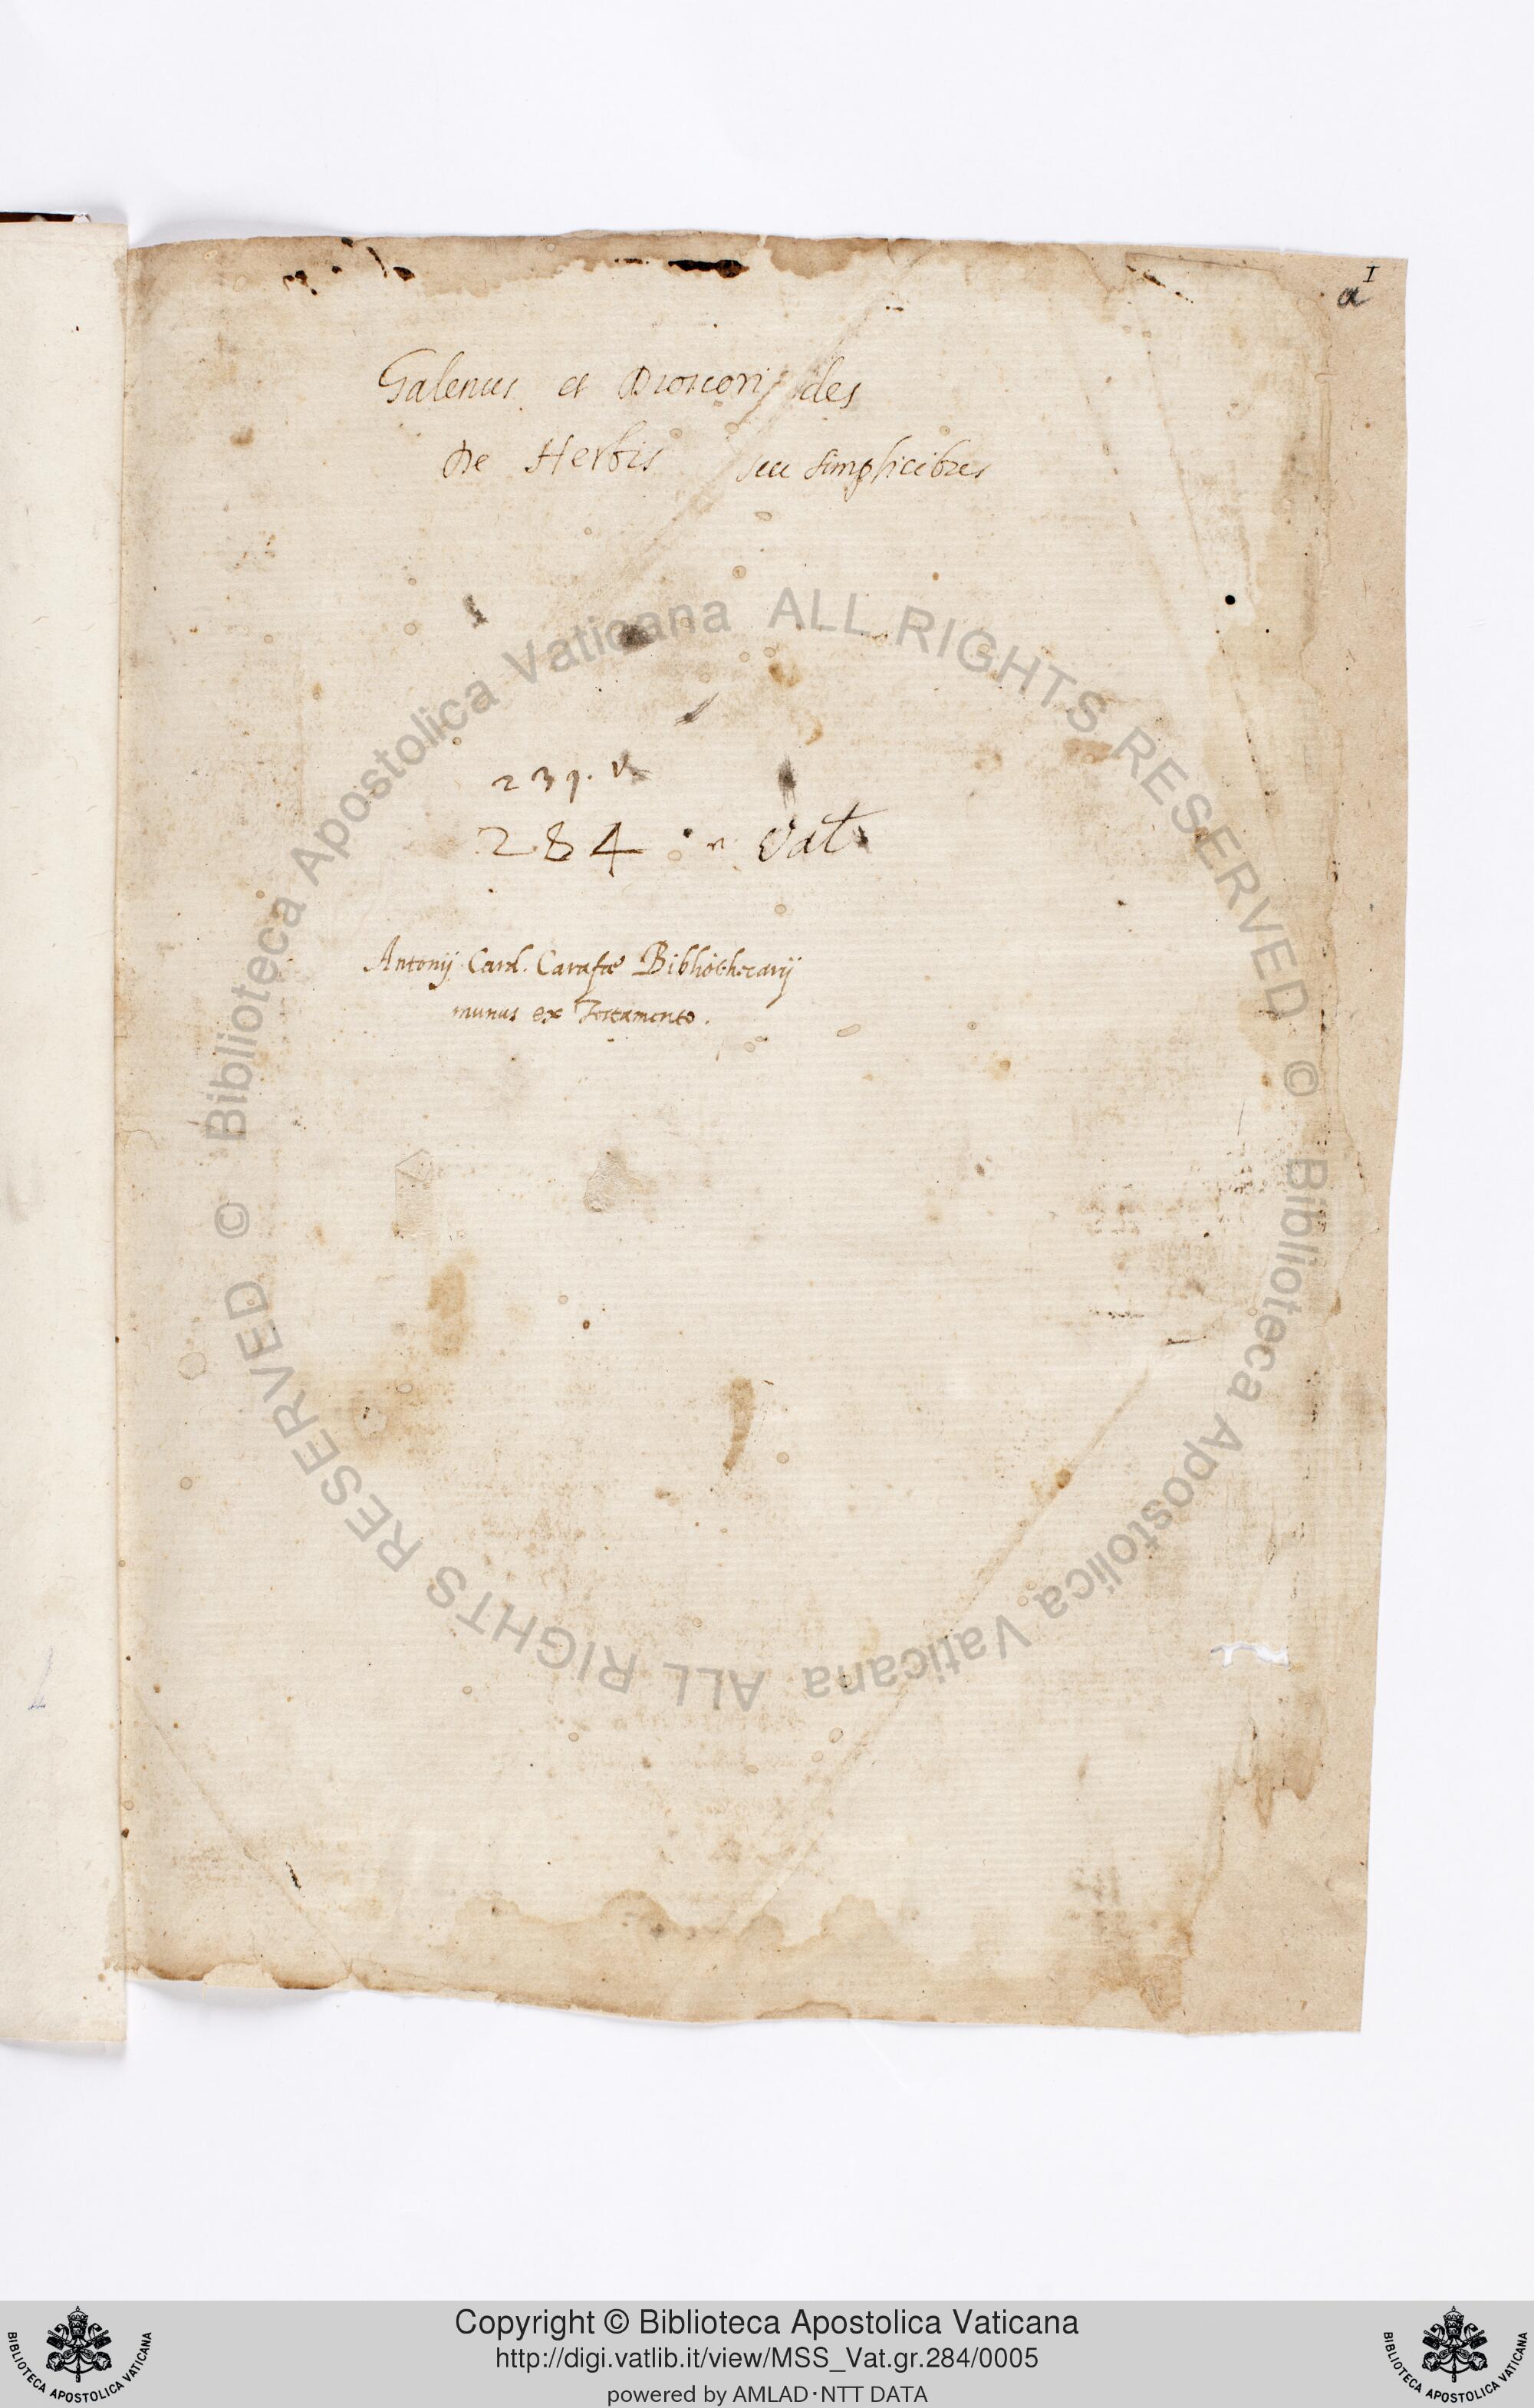 I
a
Galenus et Dioscorides
De Herbis seu simplicibus
239. V
284 Vat
Antonij Card. Carafæ Bibliothecarij
munus ex Testamento.
© Biblioteca Apostolica Vaticana ALL RIGHTS RESERVED
© Biblioteca Apostolica Vaticana ALL RIGHTS RESERVED
Copyright © Biblioteca Apostolica Vaticana
http://digi.vatlib.it/view/MSS_Vat.gr.284/0005
powered by AMLAD·NTT DATA
BIBLIOTECA APOSTOLICA VATICANA
BIBLIOTECA APOSTOLICA VATICANA